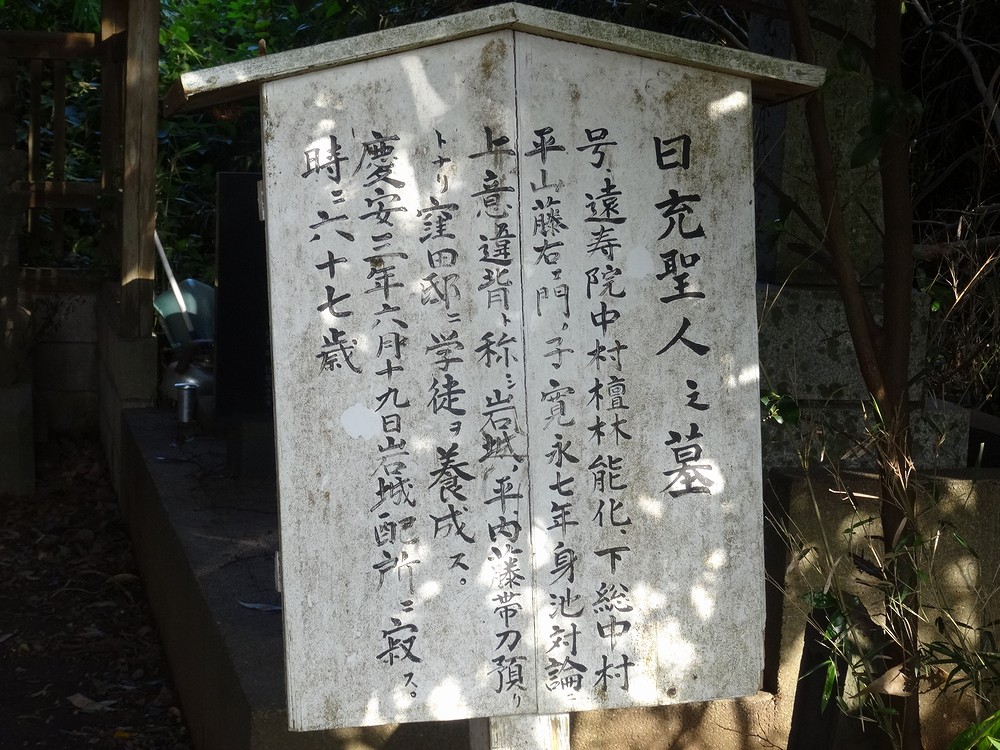 日充聖人之墓
号、遠寿院中村檀林能化、下総中村
平山藤右ェ門ノ子寛永七年身池対論ニ
上意違背ト称シ岩城ノ平内藤帯刀預リ
トナリ窪田邸ニ学徒ヲ養成ス。
慶安三年六月十九日岩城配所ニ寂ス。
時ニ六十七歳